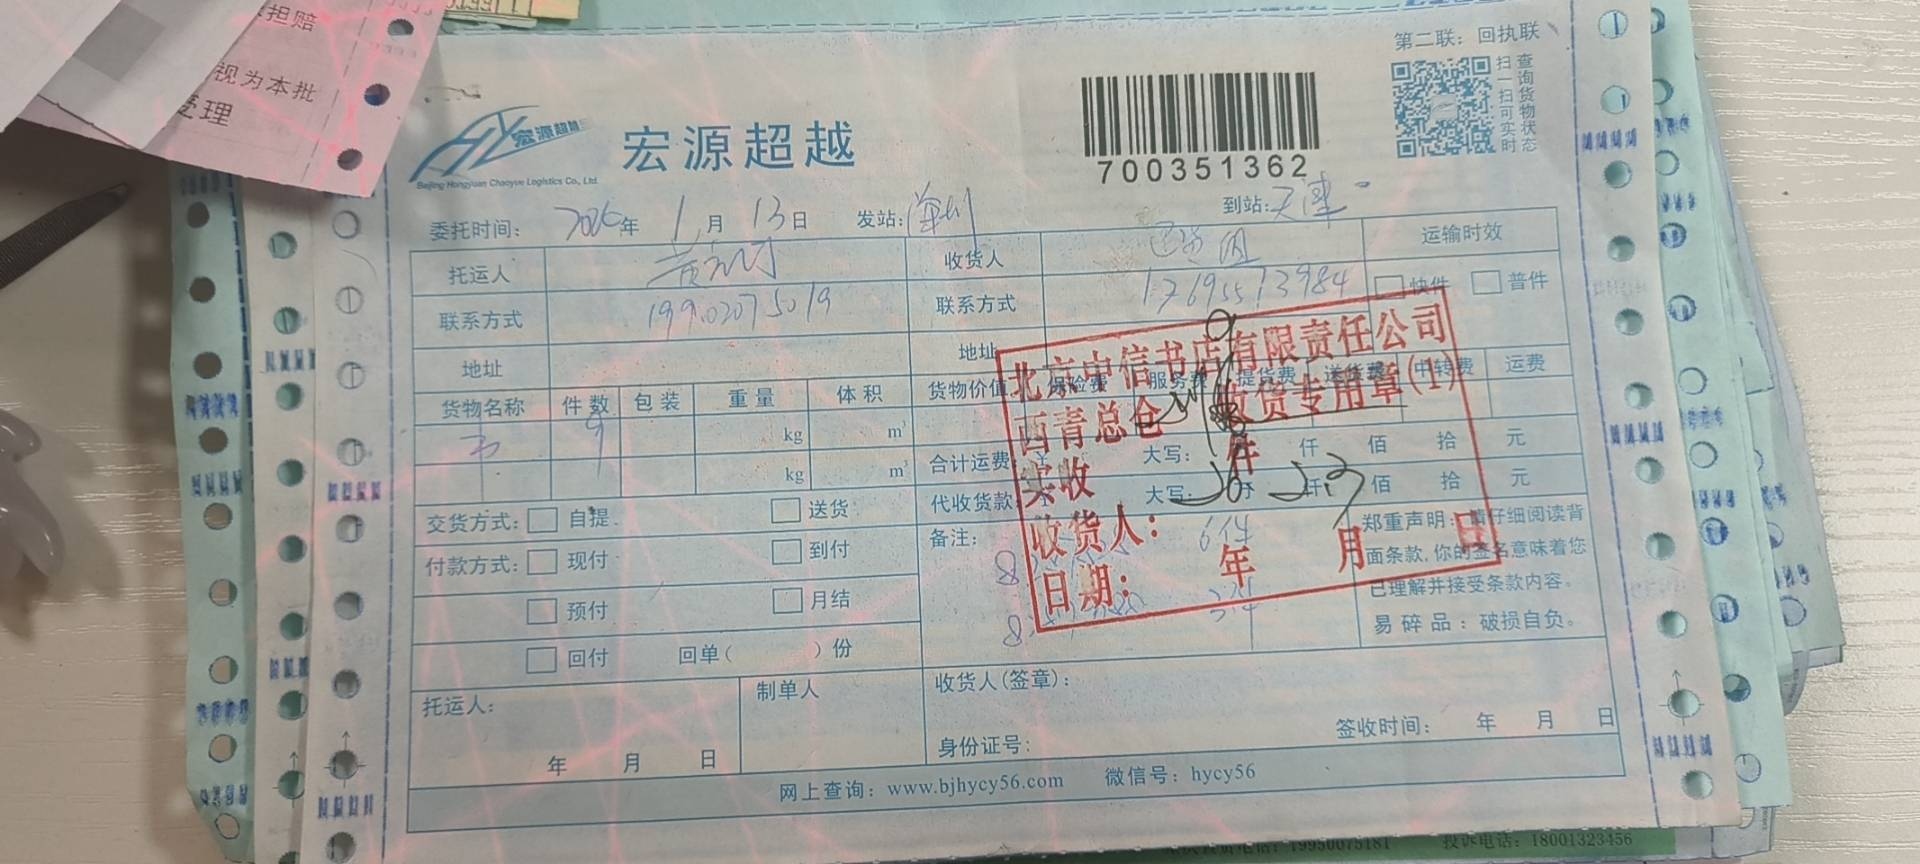 担赔
视为本批
受理
第二联：回执联
查询货物状态
扫一扫可实时
宏源超越
Beijing Hongyuan Chaoyue Logistics Co., Ltd.
宏源超越
700351362
委托时间： 2026年 1月 13日 发站： 到站：天津
托运人 收货人 运输时效
联系方式 19902075019 联系方式 17695513984 快件 普件
地址 地址
货物名称 件数 包装 重量 体积 货物价值 保险费 服务费 提货费 送货费 中转费 运费
书 9 kg m³
kg m³
合计运费：¥ 大写： 仟 佰 拾 元
代收货款： 大写 仟 佰 拾 元
交货方式： 自提 送货
付款方式： 现付 到付
预付 月结
回付 回单（ ）份
备注：
6件
3件
郑重声明：请仔细阅读背
面条款，你的签名意味着您
已理解并接受条款内容。
易碎品：破损自负。
北京中信书店有限责任公司
西青总仓 收货专用章(1)
实收 9 件
收货人：
日期： 年 月 日
26 2.3
托运人： 制单人 收货人(签章)：
年 月 日 身份证号： 签收时间： 年 月 日
网上查询：www.bjhycy56.com 微信号：hycy56
19950075181 投诉电话：18001323456